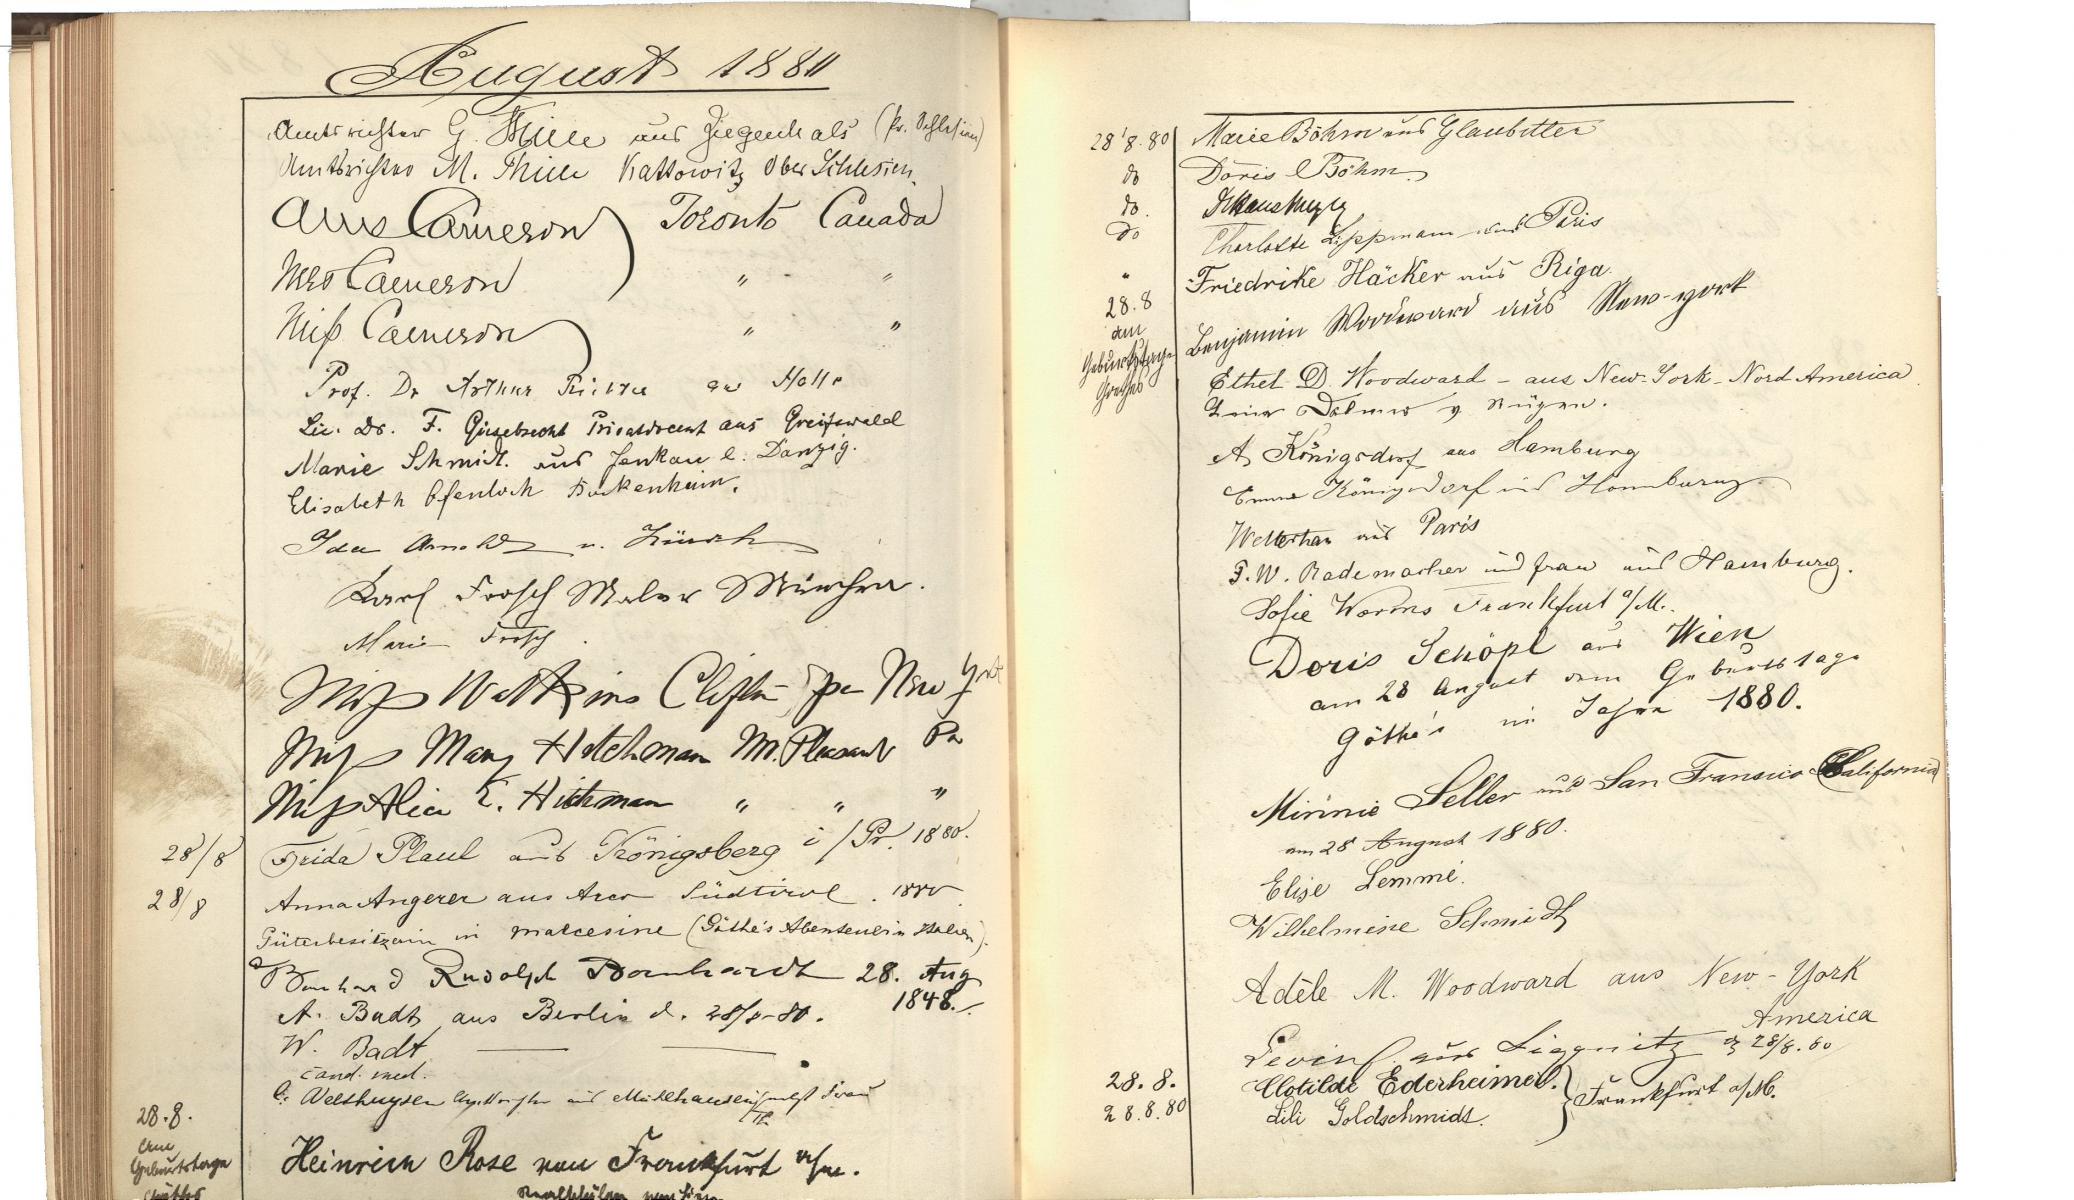 August 1880
Amtsrichter G. Thiele aus Ziegenhals (Pr. Schlesien)
Amtsrichter M. Thiele Kattowitz Ober Schlesien
Cameron Toronto Canada
Mrs Cameron " "
Miß Cameron " "
Prof. Dr Arthur Richter Halle
Lic. Dr. F. Giesebrecht Privatdocent aus Greifswald
Marie Schmidt. aus Jenkau b. Danzig.
Elisabeth Ofenloch Bockenheim.
Ida Arnold v. Zürich
Karl Frosch Maler München.
Marie Frosch.
Miss Watkins Clifton New York
Miss Mary Hitchman Mt. Pleasant Pa
Miss Alice E. Hitchman " " "
28/8 Frida Plaul aus Königsberg i/Pr. 1880.
28/8 Anna Angerer aus Arco Südtirol. 1880
Güterbesitzerin in Malcesine (Göthe's Abenteuer in Italien).
Rudolph Bernhardt 28. Aug
1848.
A. Badt aus Berlin d. 28/8-80.
W. Badt
cand. med.
C. Welthuysen aus Mühlhausen nebst Frau
28.8.
am
Geburtstage
Göthes
Heinrich Rose von Frankfurt a/m.
28/8.80 Marie Böhm aus Glaubitten
do Doris Böhm
do.
do Charlotte Lippmann aus Paris
" Friedrike Häcker aus Riga.
28.8
am
Geburtstage
Goethes
Benjamin Woodward aus New-york
Ethel D. Woodward - aus New-York - Nord America
v Rügen.
A. Königsdorf aus Hamburg
Emma Königsdorf aus Hamburg
aus Paris
F. W. Rademacher und frau aus Hamburg.
Sofie Worms Frankfurt a/M.
Doris Schöpl aus Wien
am 28 August dem Geburtstage
Göthe's im Jahre 1880.
Minnie Seller aus San Fransico California
am 28 August 1880.
Elise Lemme.
Wilhelmine Schmidt
Adèle M. Woodward aus New-York
America
aus Liegnitz 28/8.80
28.8. Clotilde Ederheimer. } Frankfurt a/M.
28.8.80 Lili Goldschmidt.